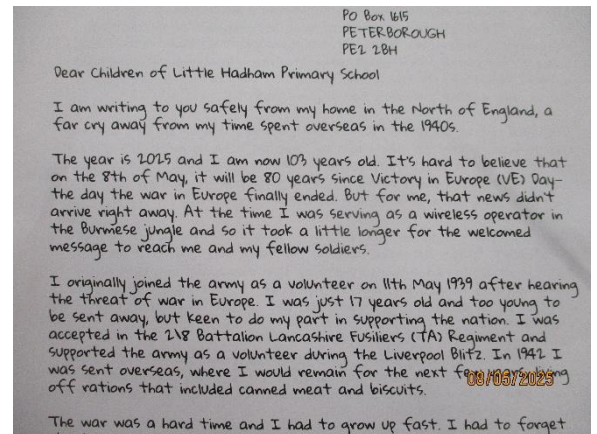 PO Box 1615
PETERBOROUGH
PE2 2BH
Dear Children of Little Hadham Primary School
I am writing to you safely from my home in the North of England, a
far cry away from my time spent overseas in the 1940s.
The year is 2025 and I am now 103 years old. It's hard to believe that
on the 8th of May, it will be 80 years since Victory in Europe (VE) Day-
the day the war in Europe finally ended. But for me, that news didn't
arrive right away. At the time I was serving as a wireless operator in
the Burmese jungle and so it took a little longer for the welcomed
message to reach me and my fellow soldiers.
I originally joined the army as a volunteer on 11th May 1939 after hearing
the threat of war in Europe. I was just 17 years old and too young to
be sent away, but keen to do my part in supporting the nation. I was
accepted in the 2\8 Battalion Lancashire Fusiliers (TA) Regiment and
supported the army as a volunteer during the Liverpool Blitz. In 1942 I
was sent overseas, where I would remain for the next
off rations that included canned meat and biscuits.
09/05/2025
The war was a hard time and I had to grow up fast. I had to forget